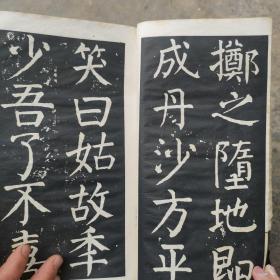 擲之墮地即
成丹沙方平
笑曰姑故年
少吾了不喜